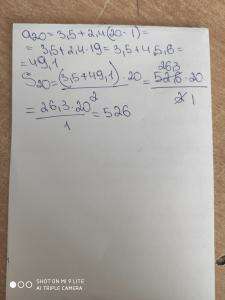 a20 = 3,5 + 2,4(20-1) =
= 3,5 + 2,4 · 19 = 3,5 + 45,6 =
= 49,1
S20 = (3,5 + 49,1) · 20 / 2 = 26,3 52,6 · 20 / 2 1
= 26,3 · 20 / 1 = 526
SHOT ON MI 9 LITE
AI TRIPLE CAMERA